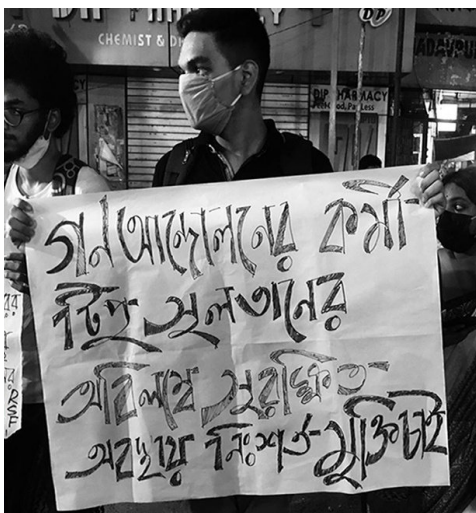 CHEMIST & D
DP
ADAVPU
DIP PHARMACY
Pay Less
গন আন্দোলনের কর্মী
টিপু সুলতানের
অবিলম্বে সুরক্ষিত
অবস্থায় নিঃশর্ত মুক্তি চাই
RSF